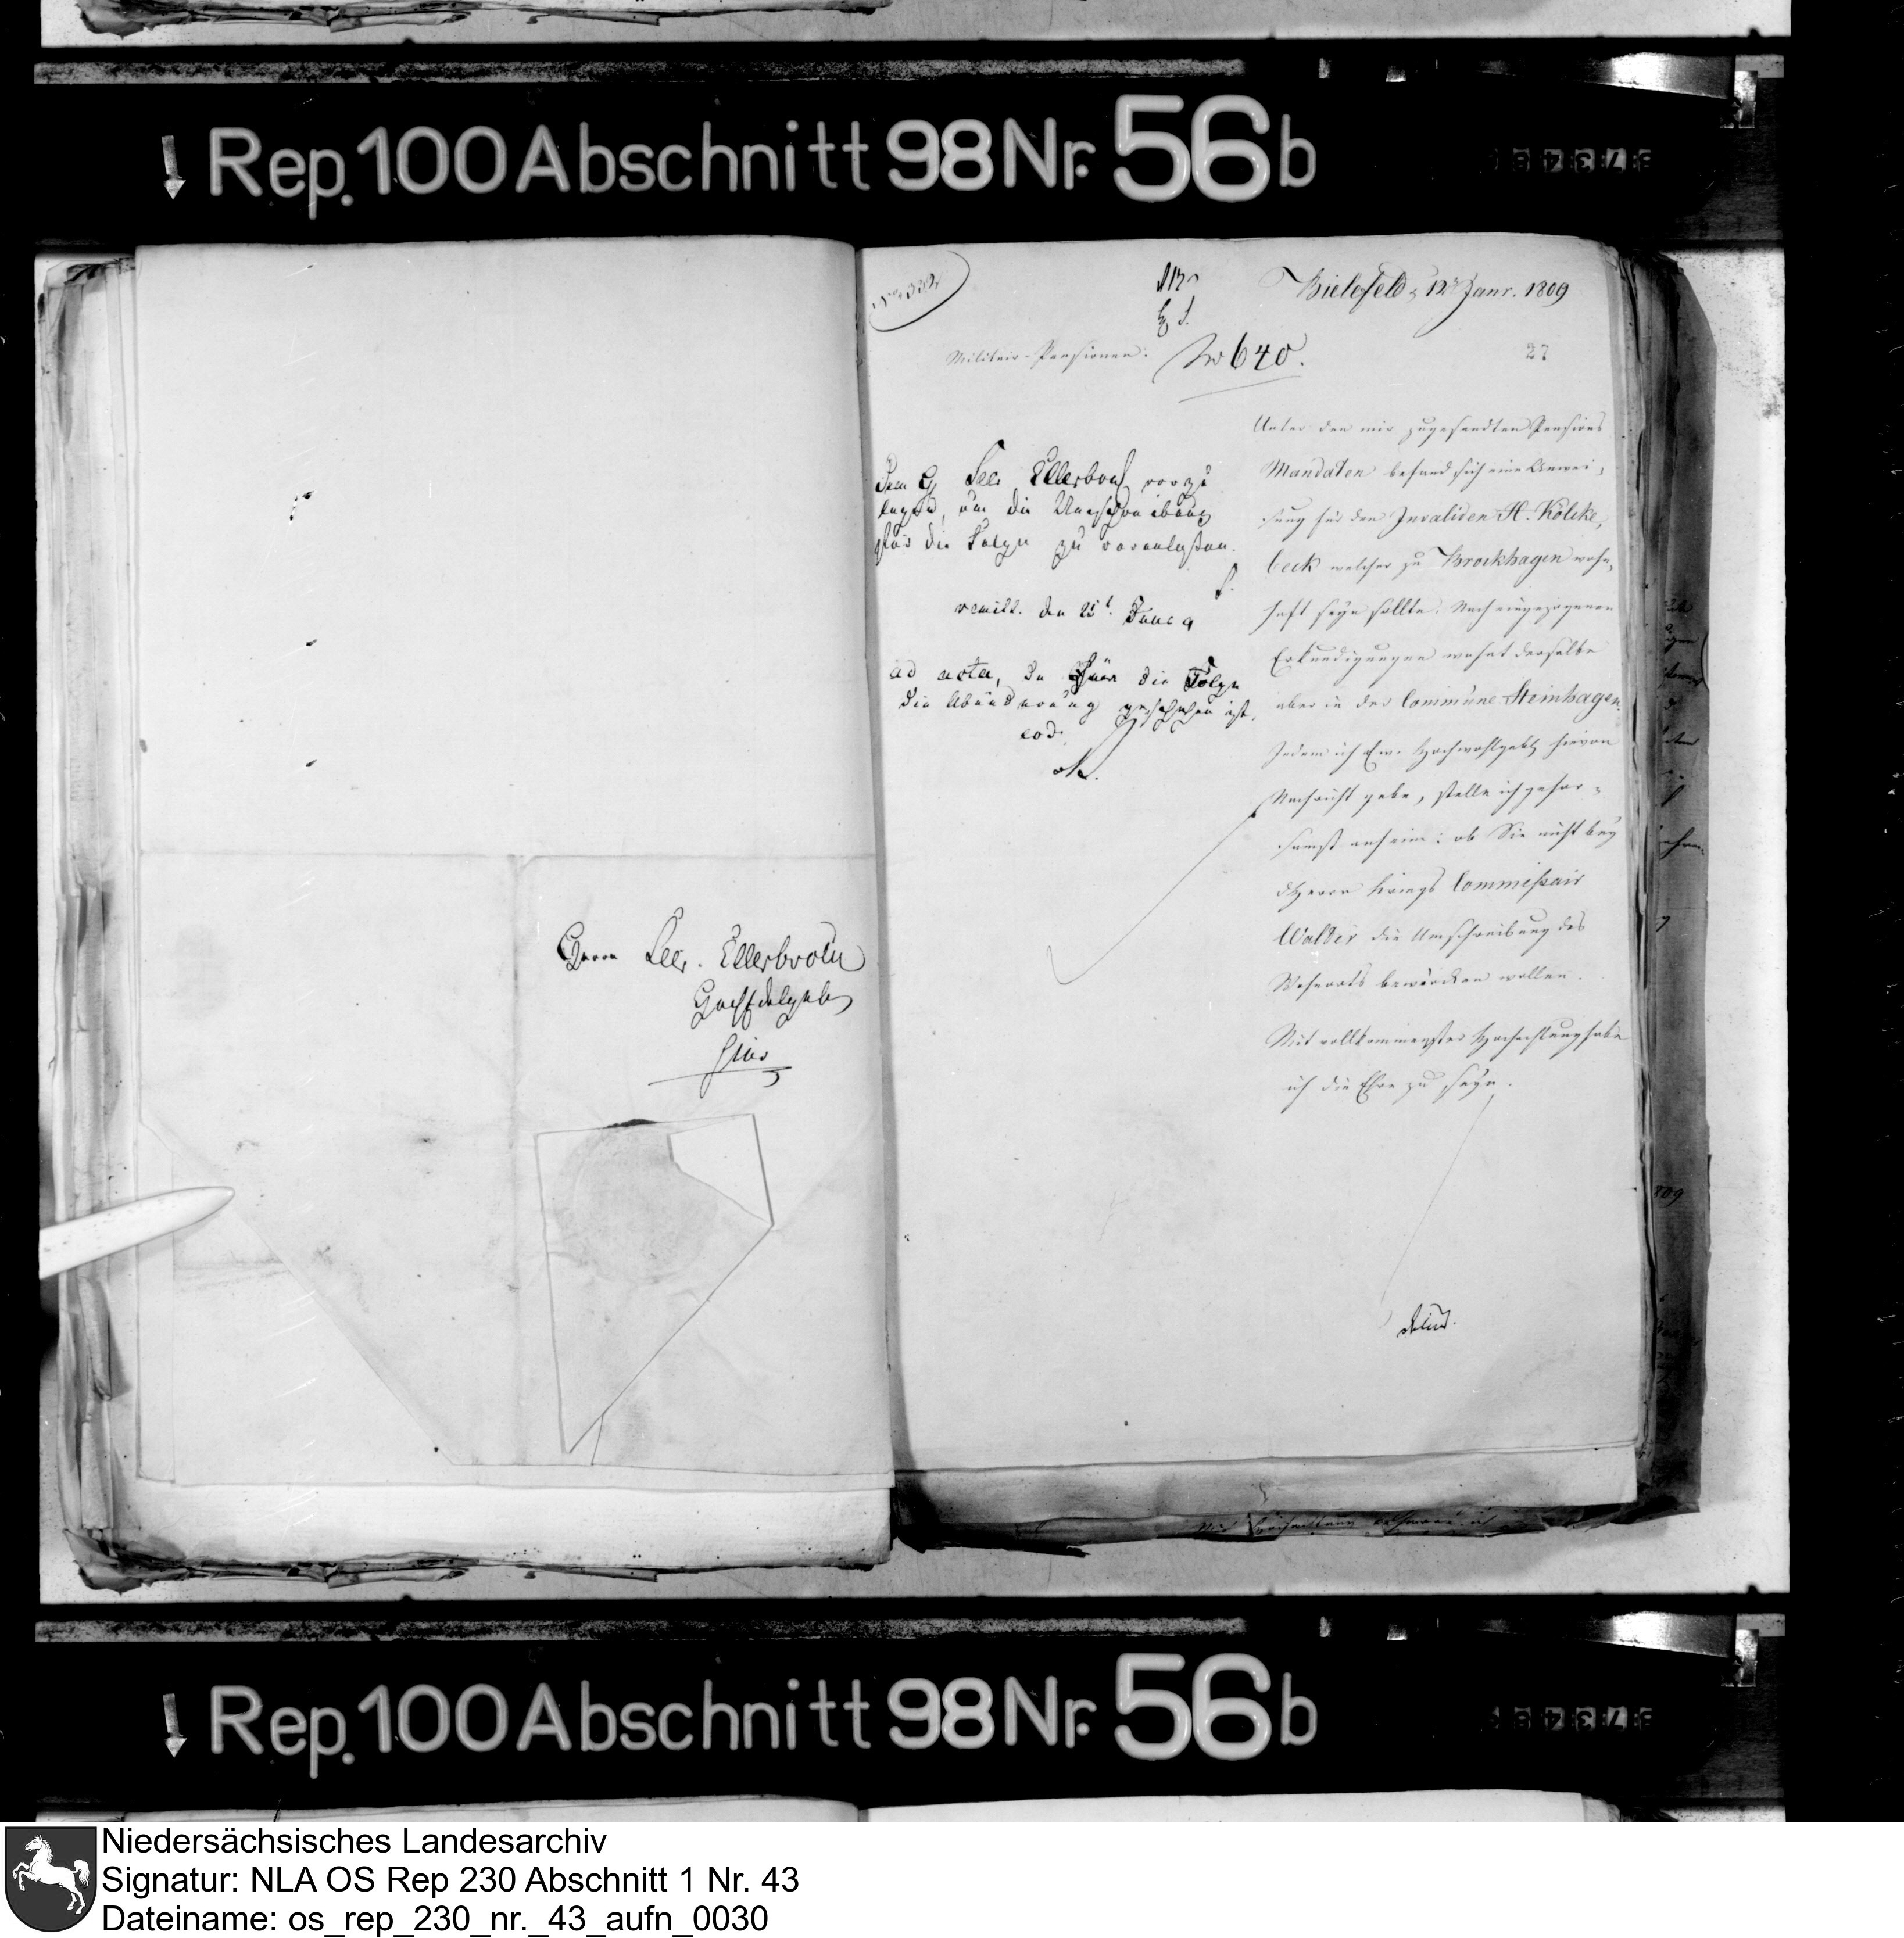 Rep. 100 Abschnitt 98 Nr. 56b
Herrn Secr. Ellerbrock
Hochedelgeb
hier
Bielefeld, 12t Janr. 1809
Militair-Pensionen.
No 640.
27
Unter den mir zugesandten Pensions
Mandaten befand sich eine Anwei-
sung für den Invaliden H. Kölcke,
beck welcher zu Brockhagen wohn,
haft seyn sollte. Nach eingezogenen
Erkundigungen wohnt derselbe
aber in der Commüne Steinhagen.
Indem ich Ew. Hochwohlgeb hievon
Nachricht gebe, stelle ich gehor-
samst anheim: ob Sie nicht bey
dHerrn Kriegs Commißair
Walder die Umschreibung des
Wohnorts bewürcken wollen.
Mit vollkommenster Hochachtung habe
ich die Ehre zu seyn.
Dem H Secr Ellerbrock vorzu
legen, um die Umschreibung
für die Folge zu veranlaßen.
remitt. den
ad acta, da für die Folge
die Abänderung geschehen ist.
eod.
809
Rep. 100 Abschnitt 98 Nr. 56b
Niedersächsisches Landesarchiv
Signatur: NLA OS Rep 230 Abschnitt 1 Nr. 43
Dateiname: os_rep_230_nr._43_aufn_0030